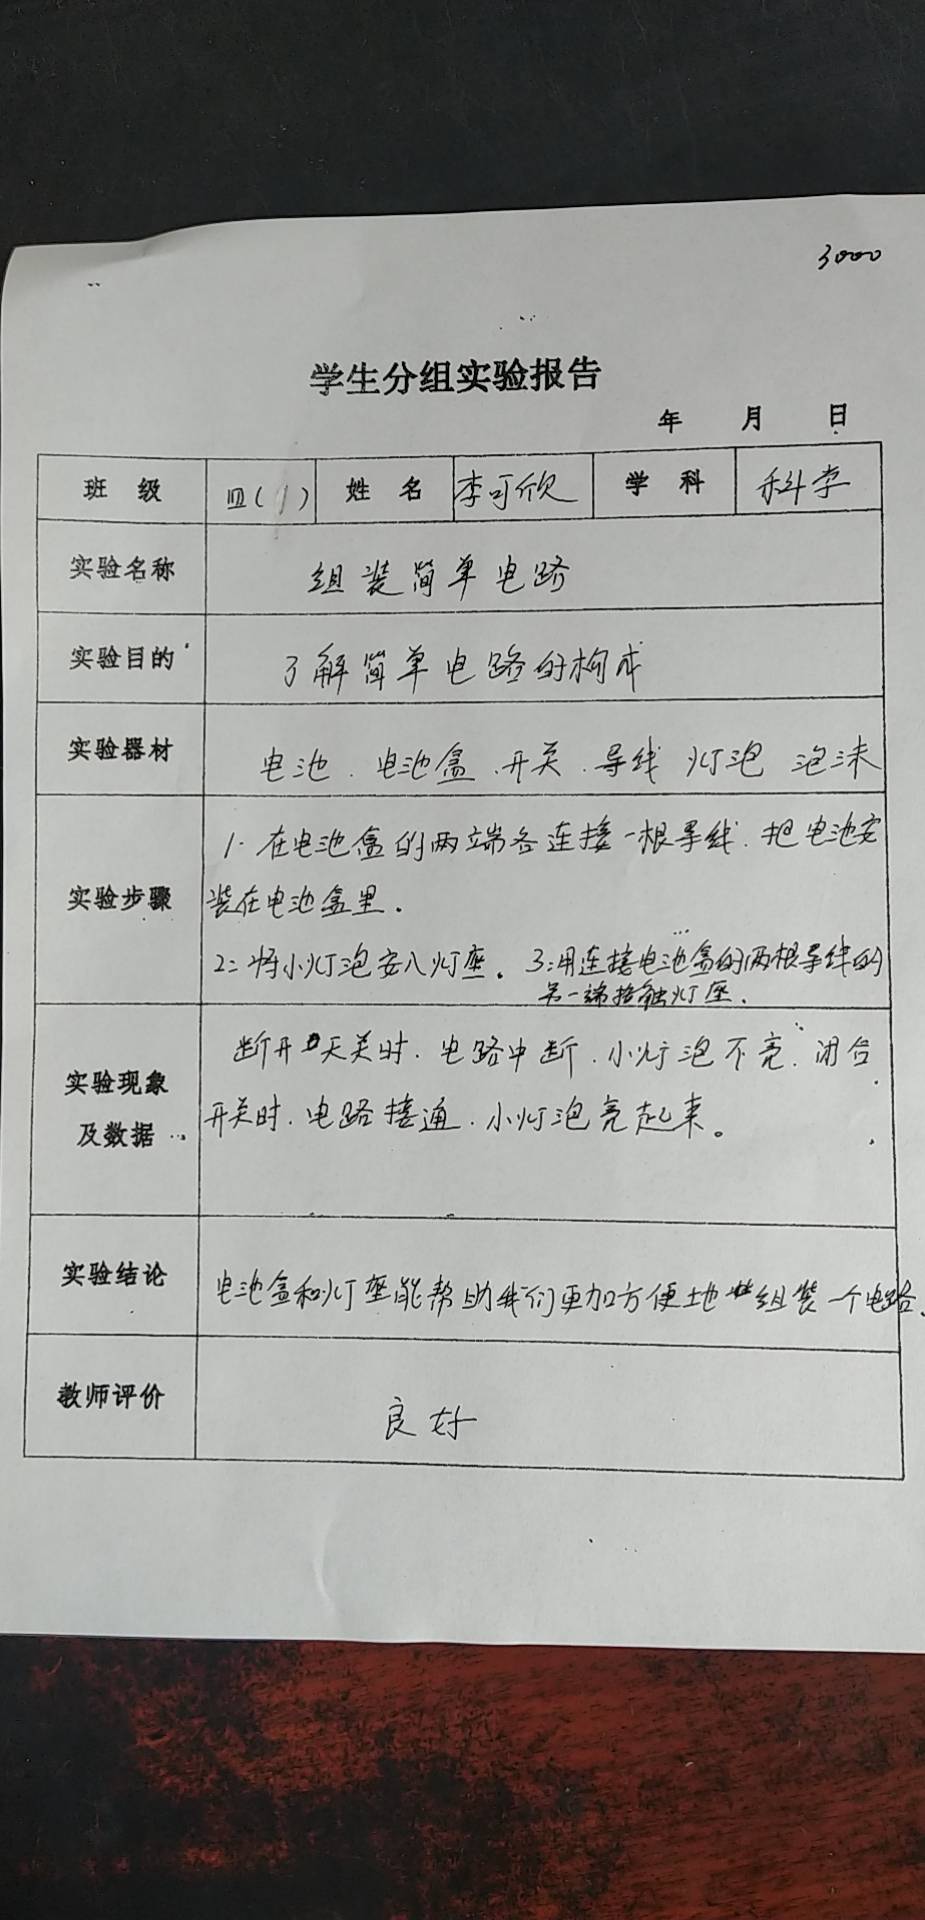 3000
学生分组实验报告
年 月 日
班 级 四(1) 姓 名 李可欣 学 科 科学
实验名称 组装简单电路
实验目的 了解简单电路的构成
实验器材 电池、电池盒、开关、导线 灯泡 泡沫
实验步骤
1.在电池盒的两端各连接一根导线.把电池安
装在电池盒里.
2:将小灯泡安入灯座. 3:用连接电池盒的两根导线的
另一端接触灯座.
实验现象
及数据
断开开关时.电路中断.小灯泡不亮.闭合
开关时.电路接通.小灯泡亮起来。
实验结论 电池盒和灯座能帮助我们更加方便地组装一个电路.
教师评价 良好